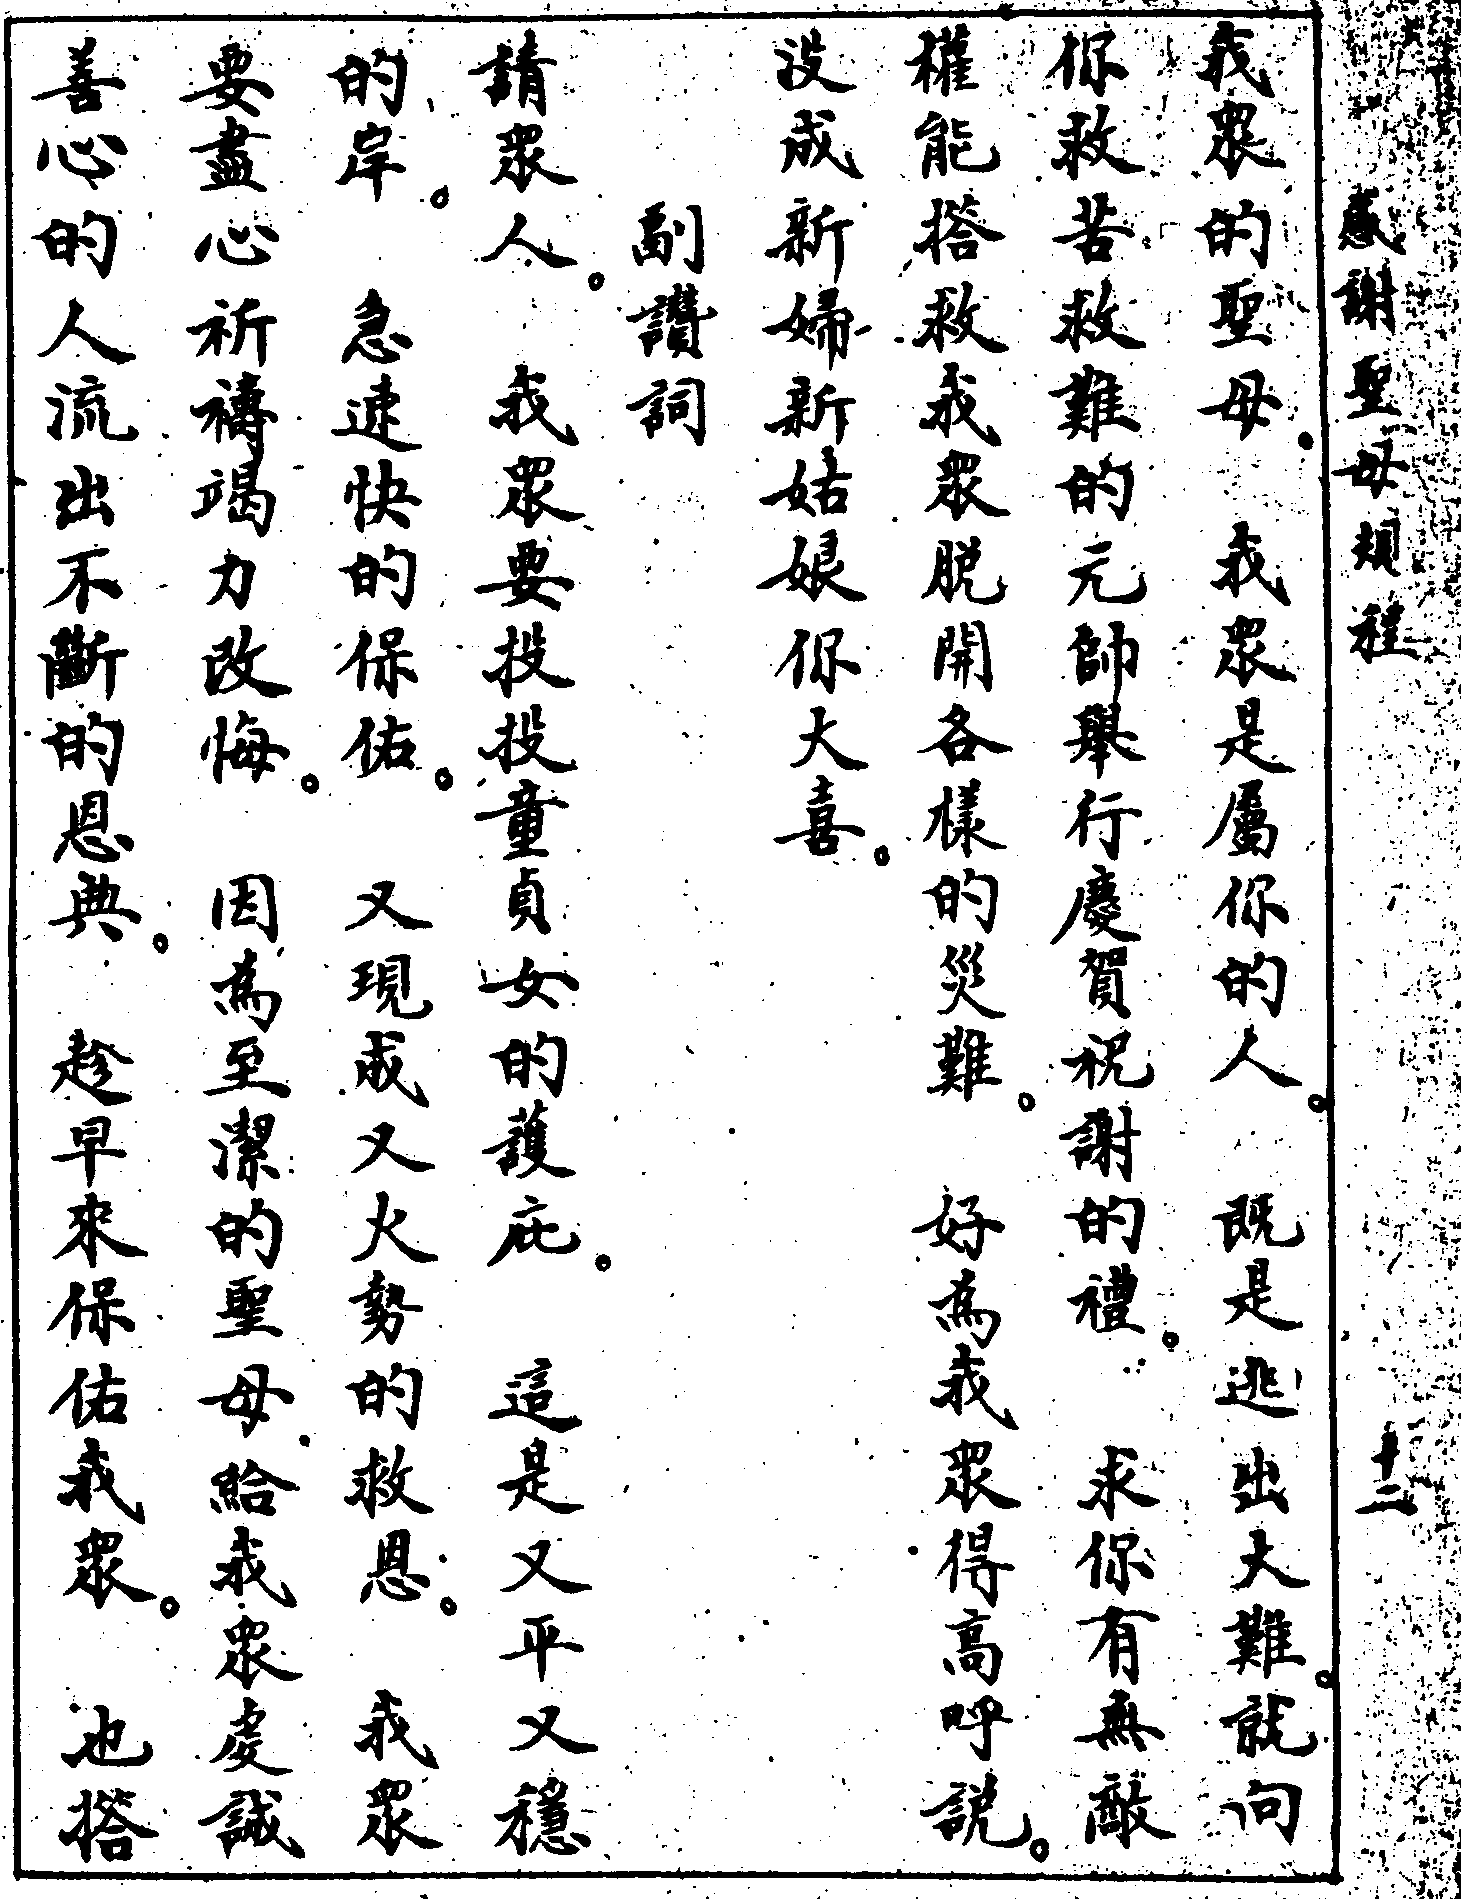 感謝聖母規程 十二
我眾的聖母。 我眾是屬你的人。 既是逃出大難。就向
你救苦救難的元帥舉行慶賀祝謝的禮。 求你有無敵
權能搭救我眾脫開各樣的災難。 好為我眾得高呼說。
沒成新婦新姑娘你大喜。
副讚詞
請眾人。 我眾要投投童貞女的護庇。 這是又平又穩
的岸。 急速快的保佑。 又現成又火勢的救恩。 我眾
要盡心祈禱竭力改悔。 因為至潔的聖母給我眾虔誠
善心的人流出不斷的恩典。 趁早來保佑我眾。 也搭